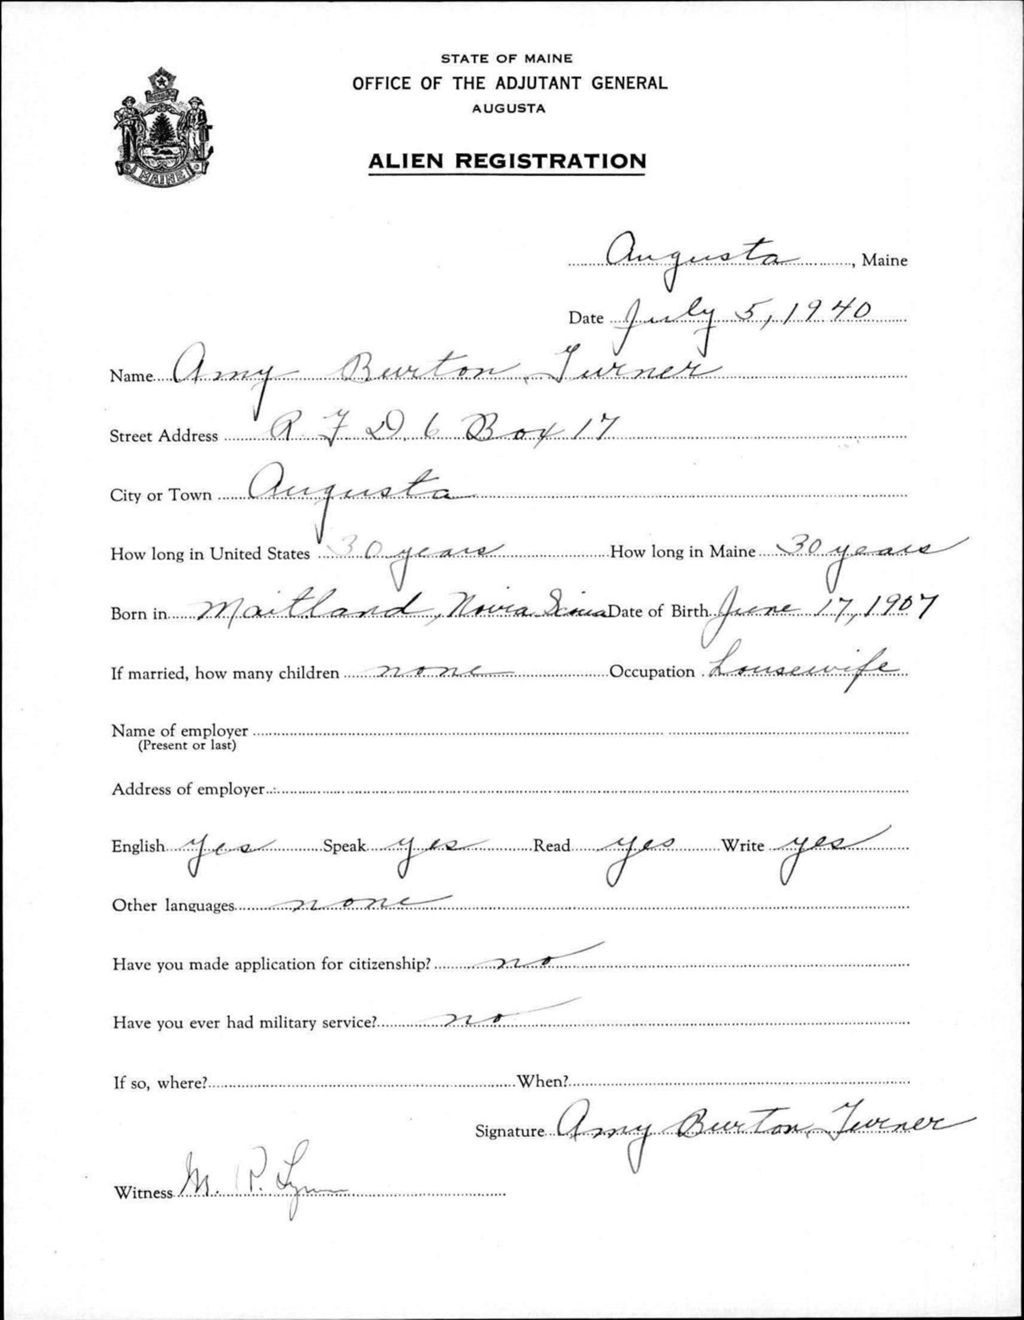 STATE OF MAINE
OFFICE OF THE ADJUTANT GENERAL
AUGUSTA
MAINE
ALIEN REGISTRATION
Augusta, Maine
Date July 5, 1940
Name Amy Burton Turner
Street Address R F D. 6 Box 17
City or Town Augusta
How long in United States 30 years How long in Maine 30 years
Born in Maitland, Nova Scotia Date of Birth June 17, 1907
If married, how many children none Occupation Housewife
Name of employer
(Present or last)
Address of employer
English yes Speak yes Read yes Write yes
Other languages none
Have you made application for citizenship? no
Have you ever had military service? no
If so, where? When?
Signature Amy Burton Turner
Witness M. P. Lynn